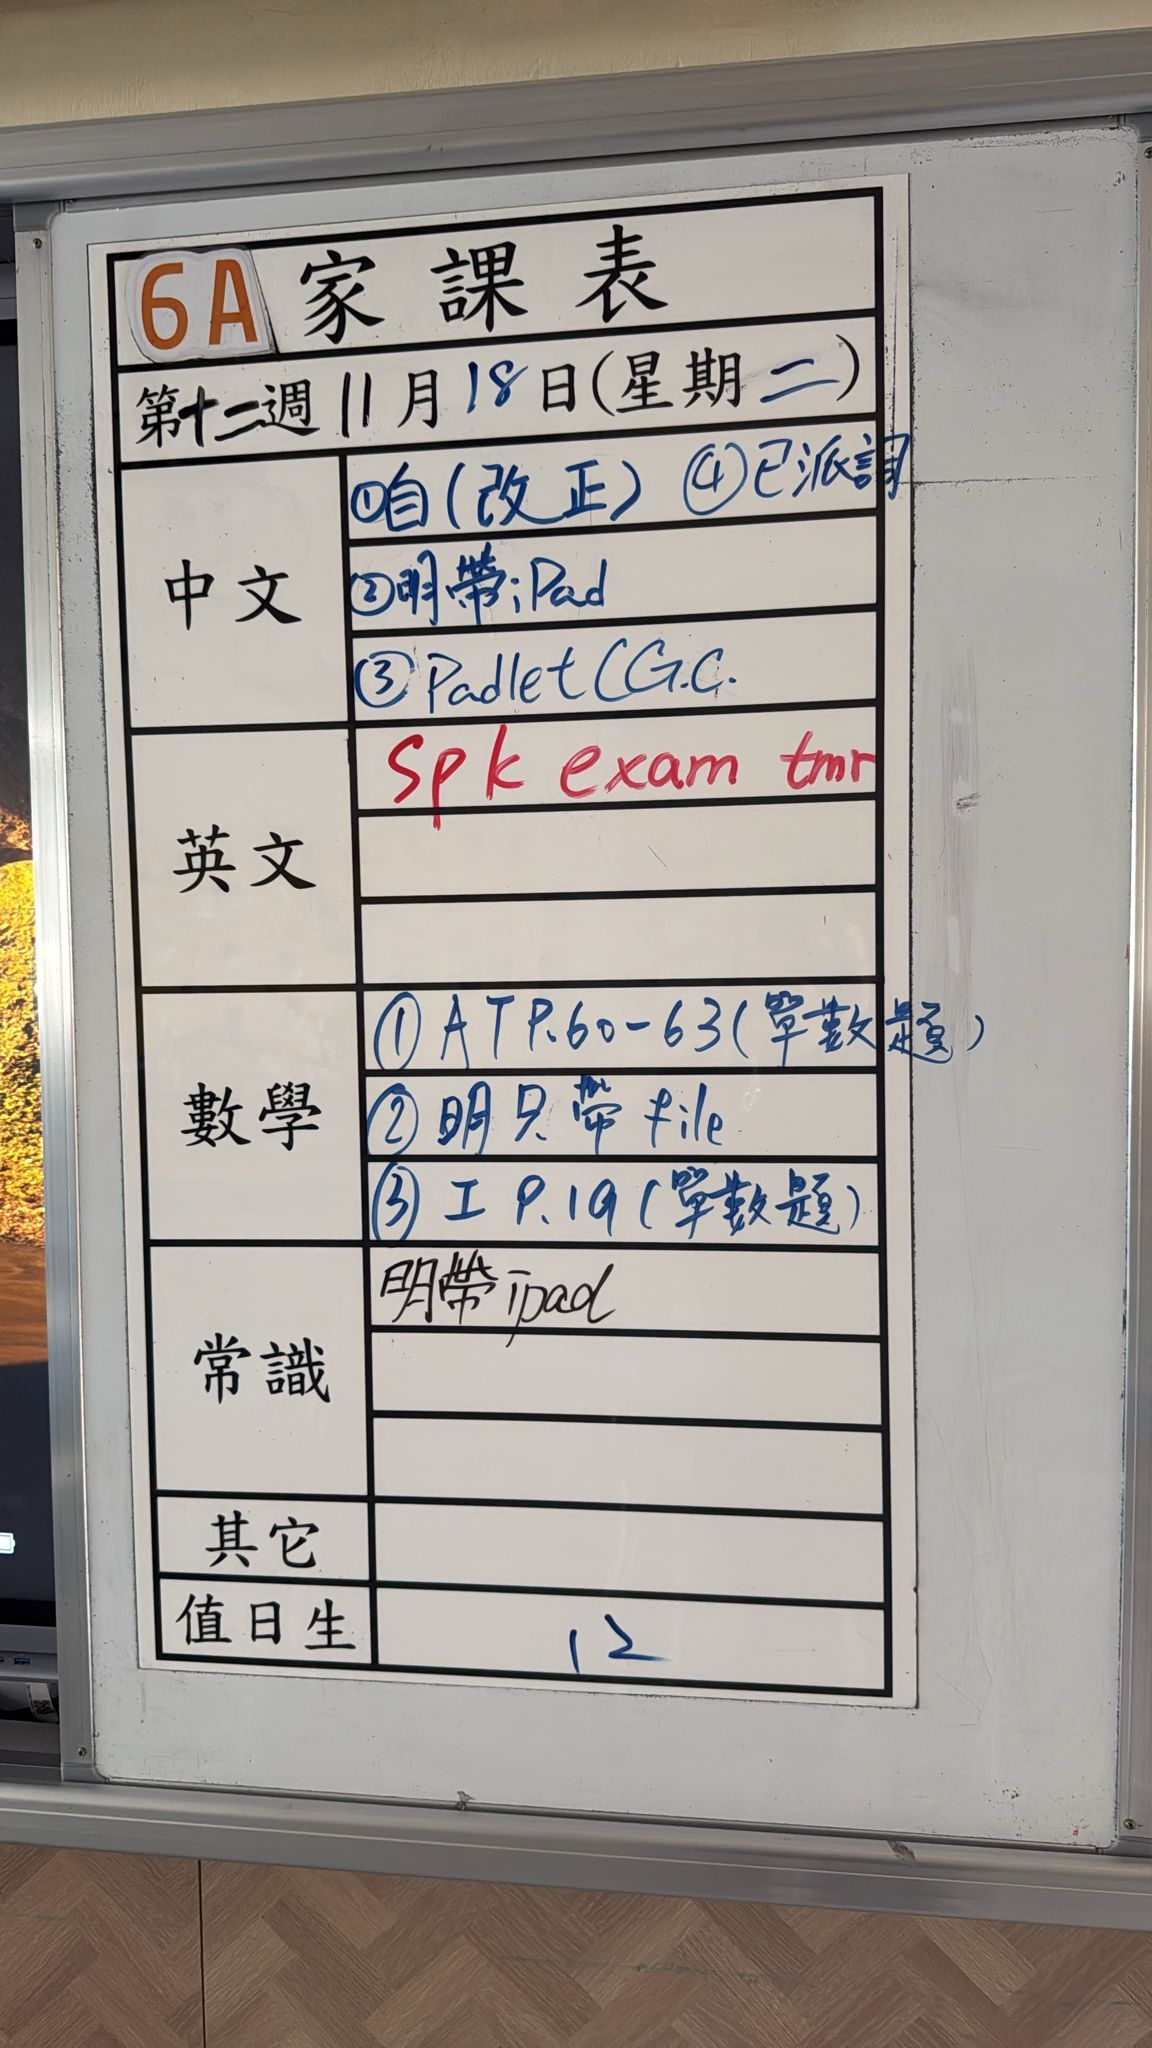 6A 家課表
第十二週 11月18日(星期二)
中文
①自(改正) ④已派詞
②明帶iPad
③Padlet (G.C.
英文
Spk exam tmr
數學
①AT P.60-63(單數題)
②明只帶file
③工 P.19(單數題)
常識
明帶ipad
其它
值日生
12